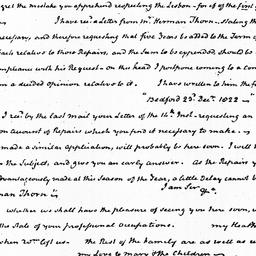 gret the mistake you apprehend respecting the Lisbon - for if of the first
I have rec.d a Letter from Mr. Herman Thorn - Stating th
necessary, and therefore requesting that five Years be added to the Term of
facts relative to those Repairs, and the Sum to be expended, should be
compliance with his Request - on this head I postpone coming to a con
on a decided opinion relative to it. I have written to him the fo
"Bedford 23.d Dec.r 1822 -"
I rec.d by the last mail your Letter of the 14.th Inst. requesting an
on account of Repairs which you find it necessary to make -
made a similar application, will probably be here soon. I will t
the Subject, and give you an early answer. As the Repairs
advantageously made at this Season of the Year, a little Delay cannot b
I am Sir &c.
man Thorn"
whether we shall have the pleasure of seeing you here soon, w
the State of your professional occupations. my Health
when you left us. The Rest of the Family are as well as u
my Love to Mary & the Children -